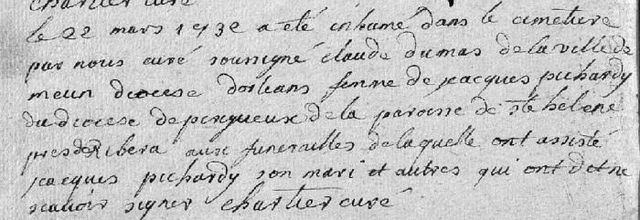 chartier curé
le 22 mars 1732 a été inhumé dans le cimetiere
par nous curé soussigné claude dumas de la ville de
meun diocese dorleans femme de jacques pichardy
du diocese de perigueux de la paroisse de ste helene
pres de Ribera aux funerailles de laquelle ont assisté
jacques pichardy son mari et autres qui ont dit ne
scavoir signer chartier curé